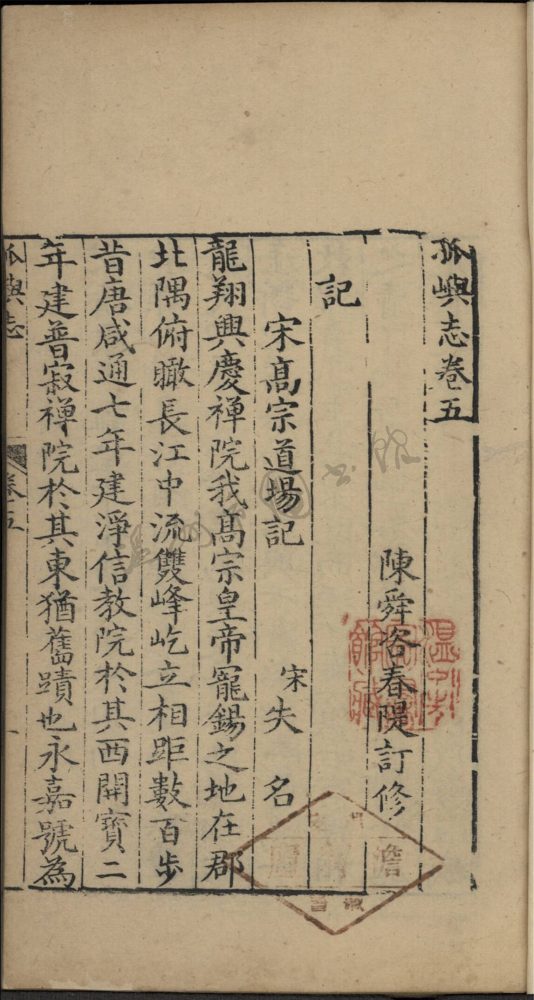 孤嶼志卷五
陳舜咨春隄訂修
記
宋髙宗道場記
宋失名
龍翔興慶禅院我髙宗皇帝寵錫之地在郡
北隅俯瞰長江中流雙峰屹立相距數百步
昔唐咸通七年建淨信教院於其西開寶二
年建普寂禅院於其東猶舊蹟也永嘉號為
孤嶼志
卷五
一